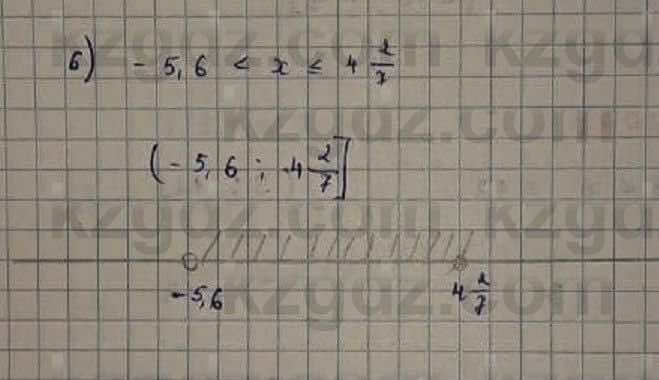 б) - 5,6 < x ≤ 4 2/7
(- 5,6 ; 4 2/7]
-5,6 4 2/7
kzgdz.com kzgd
kzgdz.com
kzgdz.com kzgd
kzgdz.com